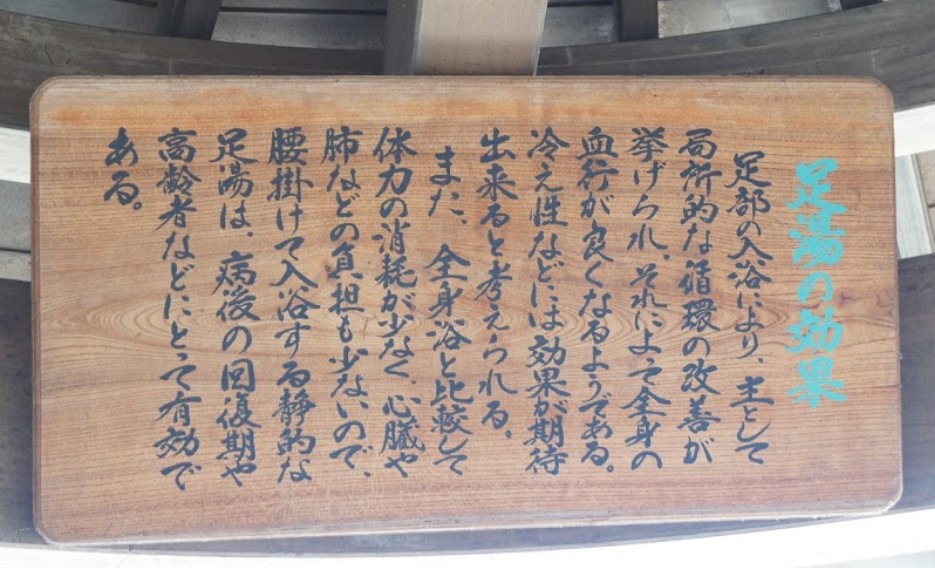 足湯の効果
足部の入浴により、主として
局所的な循環の改善が
挙げられ、それによって全身の
血行が良くなるようである。
冷え性などには効果が期待
出来ると考えられる。
また、全身浴と比較して
体力の消耗が少なく、心臓や
肺などの負担も少ないので、
腰掛けて入浴する静的な
足湯は、病後の回復期や
高齢者などにとって有効で
ある。